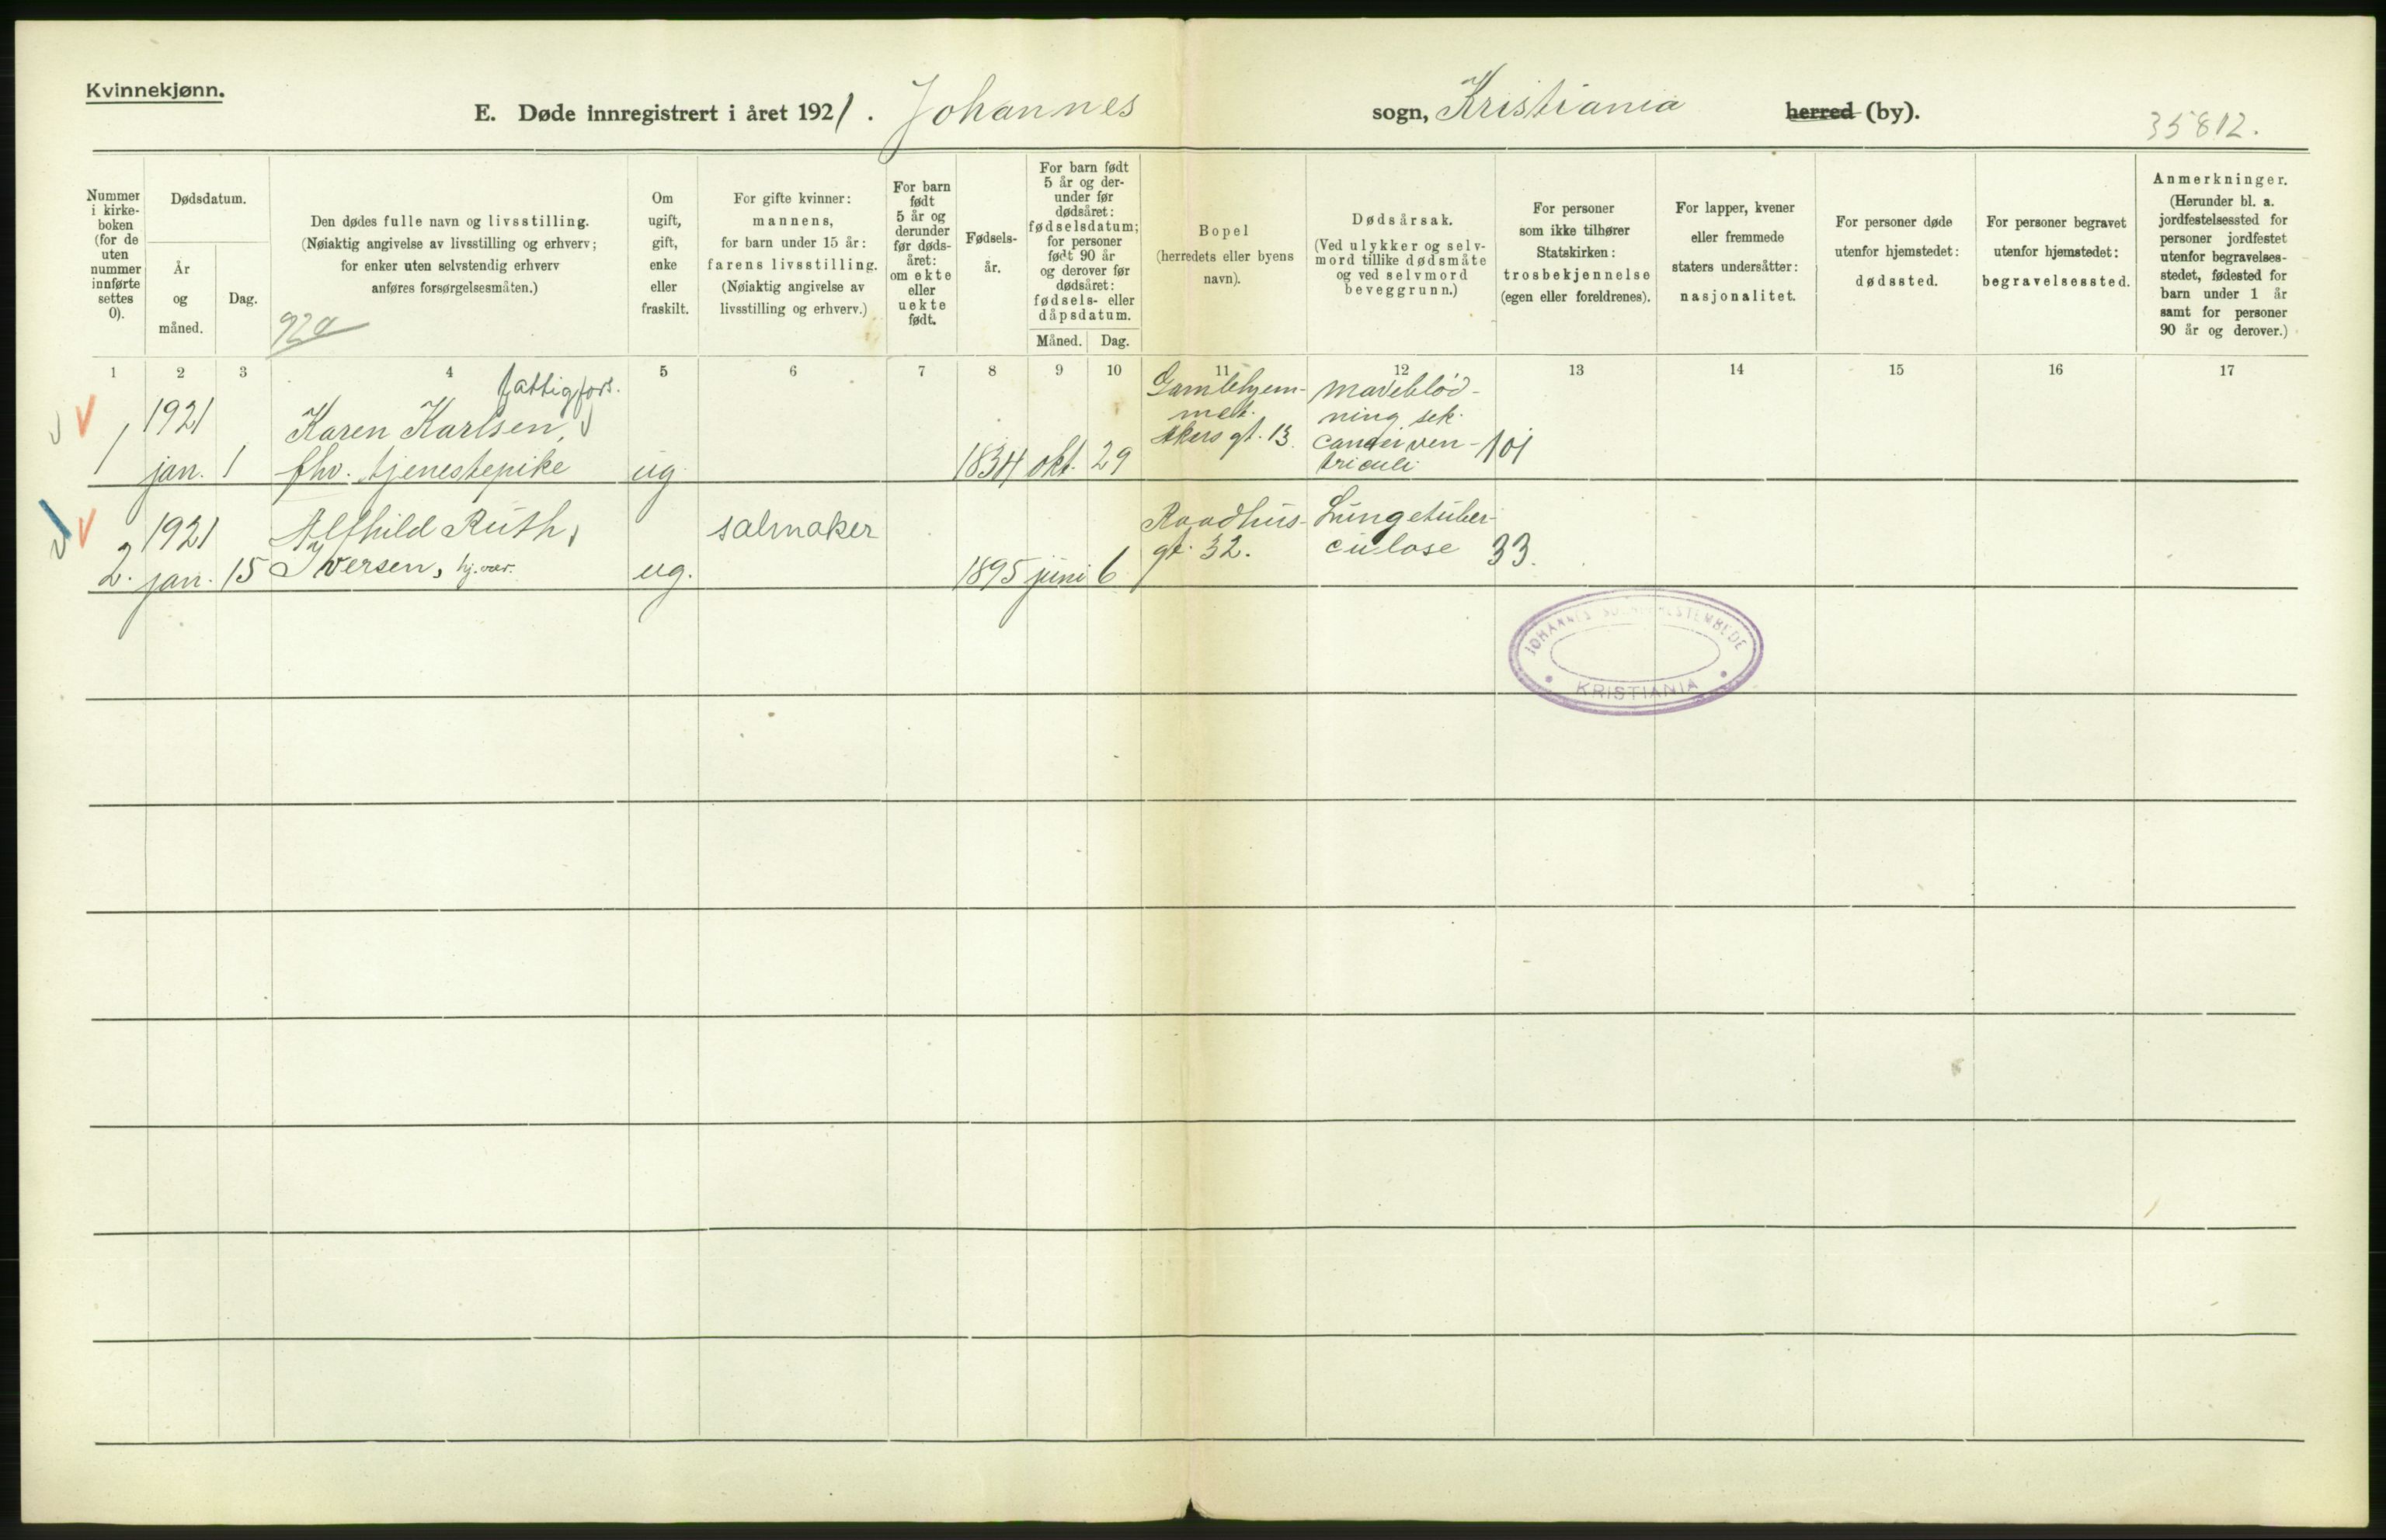 Kvinnekjønn.
E. Døde innregistrert i året 1921. Johannes sogn, Kristiania herred (by).
35812.
Nummer i kirke-
boken
(for de
uten
nummer
innførte
settes
0).
Dødsdatum.
År
og
måned.
Dag.
Den dødes fulle navn og livsstilling.
(Nøiaktig angivelse av livsstilling og erhverv;
for enker uten selvstendig erhverv
anføres forsørgelsesmåten.)
Om
ugift,
gift,
enke
eller
fraskilt.
For gifte kvinner:
mannens,
for barn under 15 år:
farens livsstilling.
(Nøiaktig angivelse av
livsstilling og erhverv.)
For barn
født
5 år og
derunder
før døds-
året:
om ekte
eller
uekte
født.
Fødsels-
år.
For barn født
5 år og der-
under før
dødsåret:
fødselsdatum;
for personer
født 90 år
og derover før
dødsåret:
fødsels- eller
dåpsdatum.
Måned. Dag.
Bopel
(herredets eller byens
navn).
Dødsårsak.
(Ved ulykker og selv-
mord tillike dødsmåte
og ved selvmord
beveggrunn.)
For personer
som ikke tilhører
Statskirken:
trosbekjennelse
(egen eller foreldrenes).
For lapper, kvener
eller fremmede
staters undersåtter:
nasjonalitet.
For personer døde
utenfor hjemstedet:
dødssted.
For personer begravet
utenfor hjemstedet:
begravelsessted.
Anmerkninger.
(Herunder bl. a.
jordfestelsessted for
personer jordfestet
utenfor begravelses-
stedet, fødested for
barn under 1 år
samt for personer
90 år og derover.)
1 2 3 4 5 6 7 8 9 10 11 12 13 14 15 16 17
fattigfors.
1 1921 jan. 1
Karen Karlsen,
fhv. tjenestepike
ug.
1834 okt. 29
Gamlehjem-
met.
Akers gt. 13.
Maveblød-
ning sek.
cancer ven-
triculi
101
2. 1921 jan. 15
Alfhild Ruth
Iversen, hj.vær.
ug.
salmaker
1895 juni 6
Raadhus-
gt. 32.
Lungetuber-
culose
33.
JOHANNES SOGNEPRESTEMBEDE
KRISTIANIA